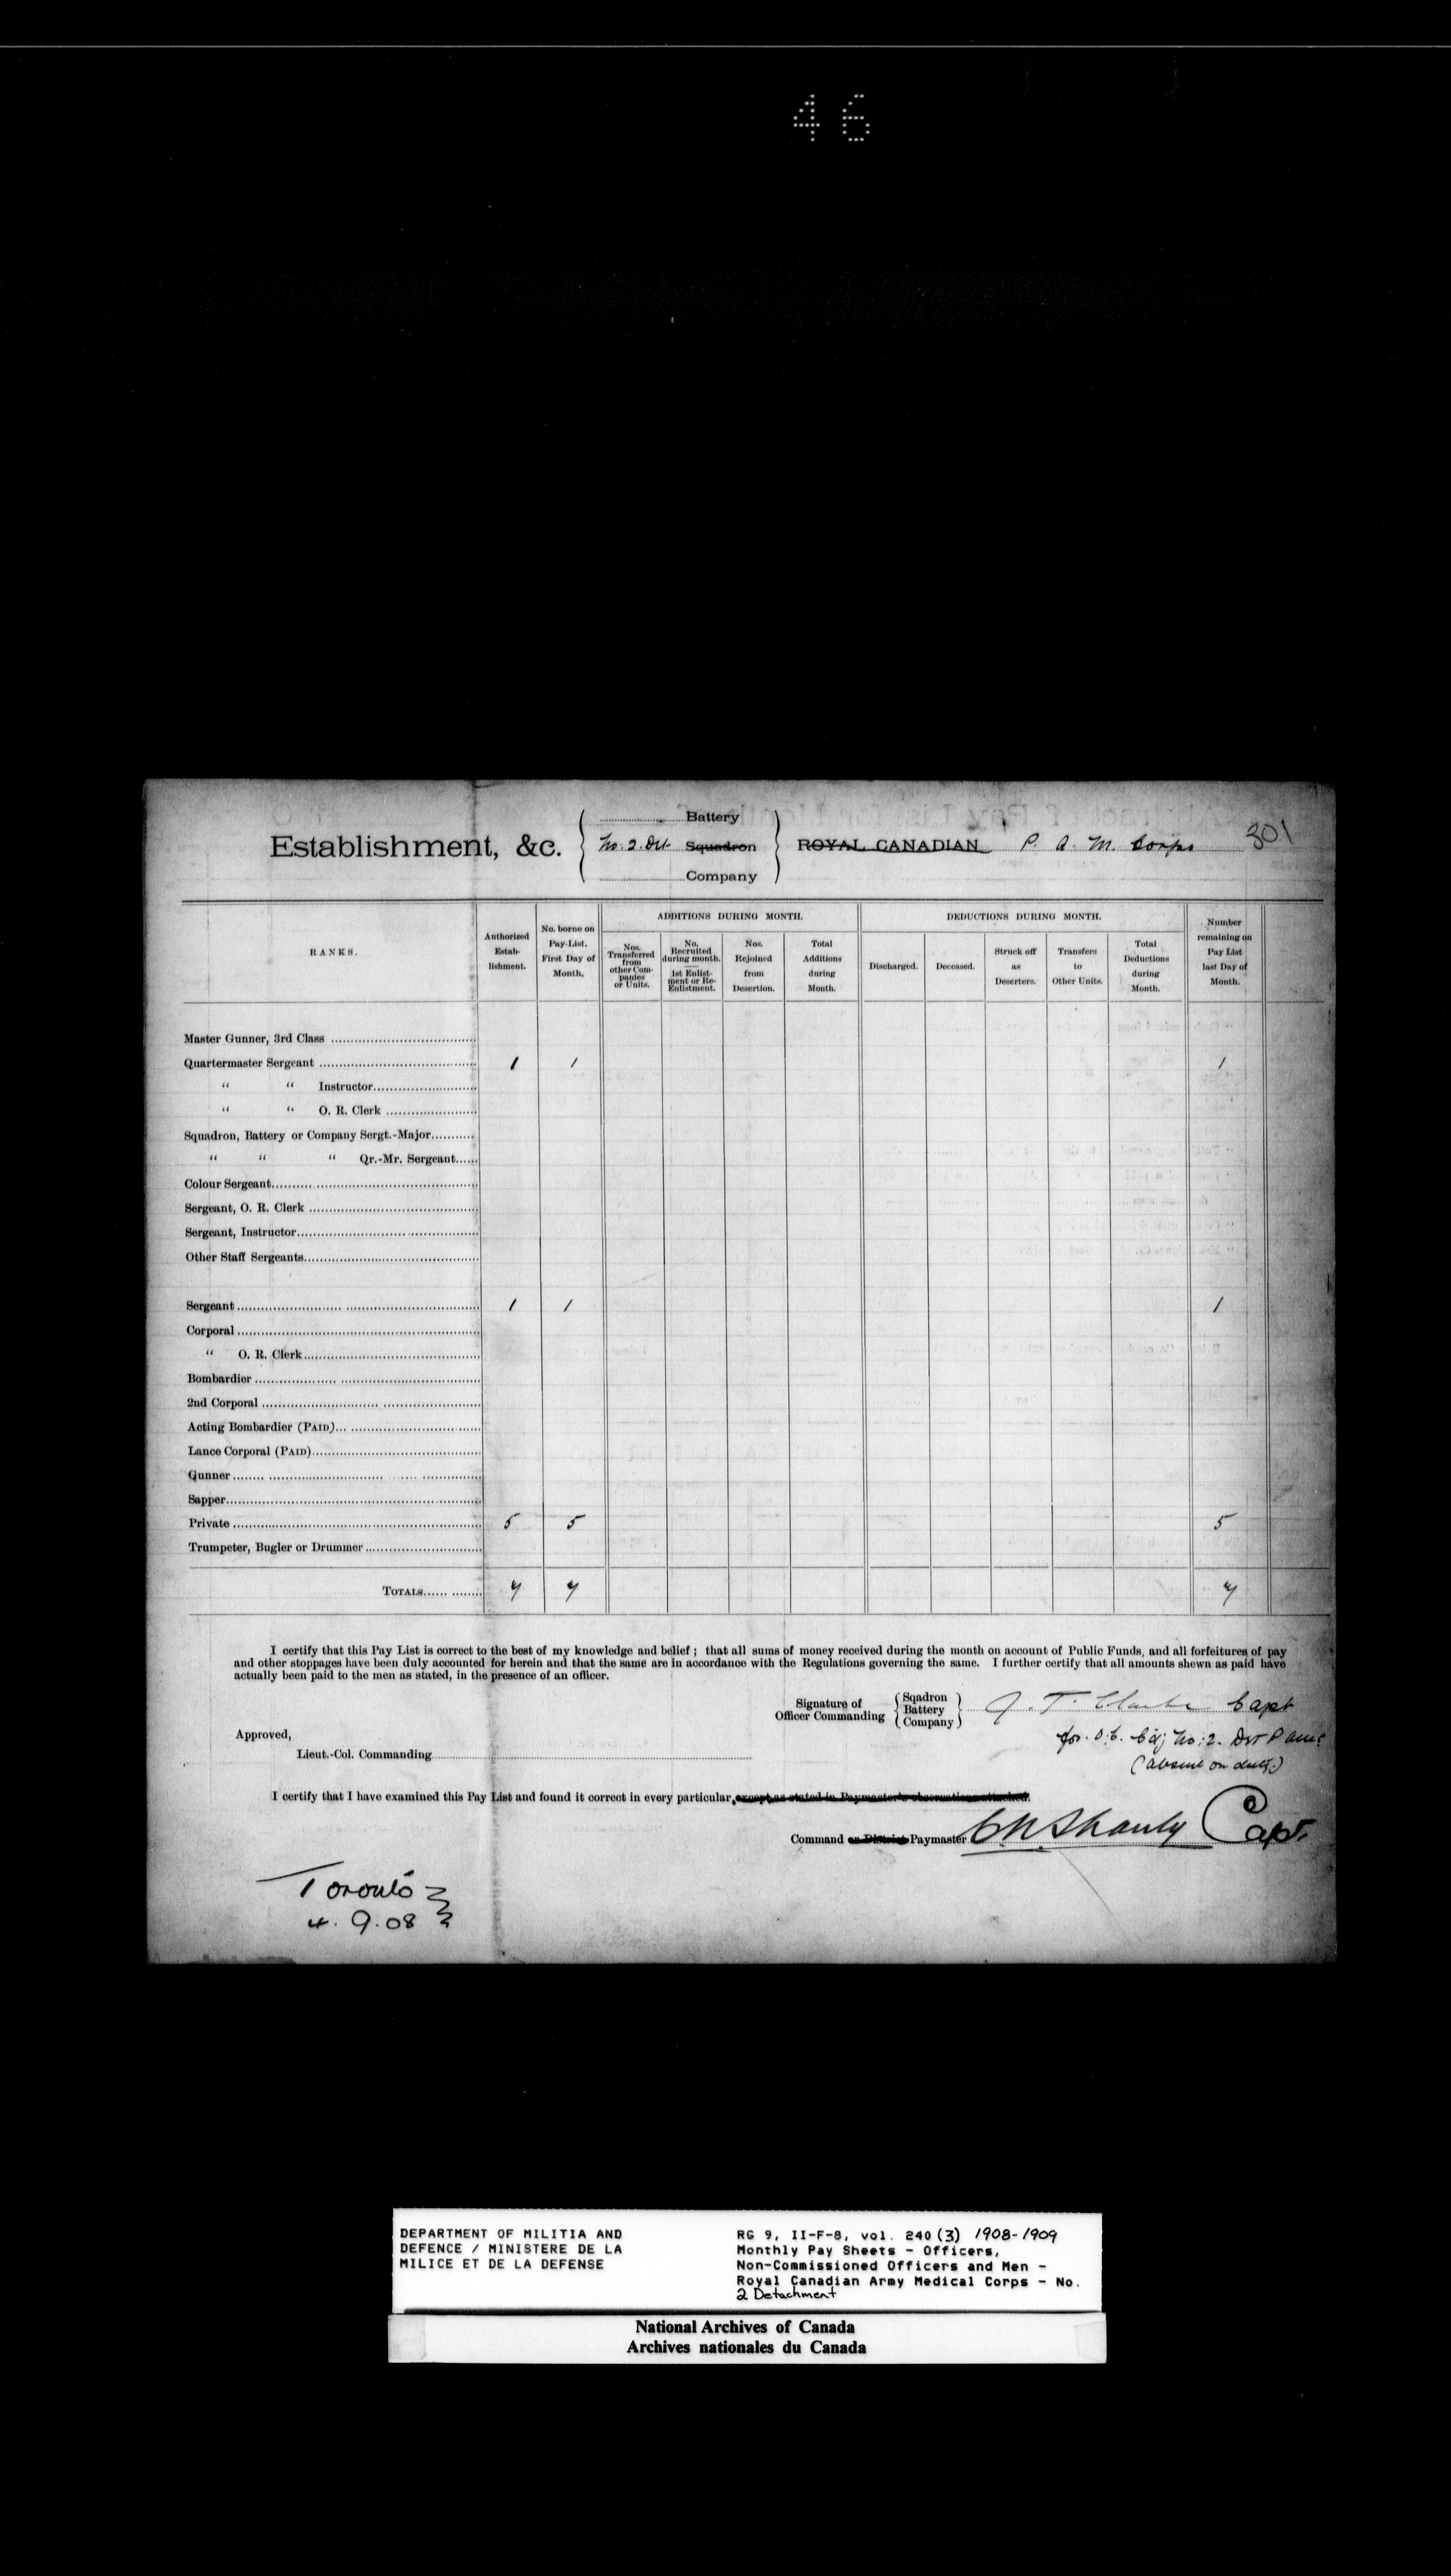 46
Battery
Establishment, &c. No. 2. Det. Squadron ROYAL CANADIAN P. A. M. Corps 301
Company
RANKS.
Authorized Estab-lishment.
No. borne on Pay-List. First Day of Month.
ADDITIONS DURING MONTH.
Nos. Transferred from other Com-panies or Units.
No. Recruited during month. 1st Enlist-ment or Re-Enlistment.
Nos. Rejoined from Desertion.
Total Additions during Month.
DEDUCTIONS DURING MONTH.
Discharged.
Deceased.
Struck off as Deserters.
Transfers to Other Units.
Total Deductions during Month.
Number remaining on Pay List last Day of Month.
Master Gunner, 3rd Class
Quartermaster Sergeant 1 1 1
" " Instructor
" " O. R. Clerk
Squadron, Battery or Company Sergt.-Major
" " " Qr.-Mr. Sergeant
Colour Sergeant
Sergeant, O. R. Clerk
Sergeant, Instructor
Other Staff Sergeants
Sergeant 1 1 1
Corporal
" O. R. Clerk
Bombardier
2nd Corporal
Acting Bombardier (PAID)
Lance Corporal (PAID)
Gunner
Sapper
Private 5 5 5
Trumpeter, Bugler or Drummer
TOTALS 7 7 7
I certify that this Pay List is correct to the best of my knowledge and belief; that all sums of money received during the month on account of Public Funds, and all forfeitures of pay
and other stoppages have been duly accounted for herein and that the same are in accordance with the Regulations governing the same. I further certify that all amounts shewn as paid have
actually been paid to the men as stated, in the presence of an officer.
Signature of Officer Commanding Sqadron Battery Company J. T. Clarke Capt
for O.C. No: 2. Det P AMC
(absent on duty.)
Approved,
Lieut.-Col. Commanding
I certify that I have examined this Pay List and found it correct in every particular, except as stated in Paymaster's observations attached.
Command or District Paymaster C N Shanly Capt.
Toronto
4. 9. 08
DEPARTMENT OF MILITIA AND
DEFENCE / MINISTERE DE LA
MILICE ET DE LA DEFENSE
RG 9, II-F-8, vol. 240 (3) 1908-1909
Monthly Pay Sheets - Officers,
Non-Commissioned Officers and Men -
Royal Canadian Army Medical Corps - No.
2 Detachment
National Archives of Canada
Archives nationales du Canada